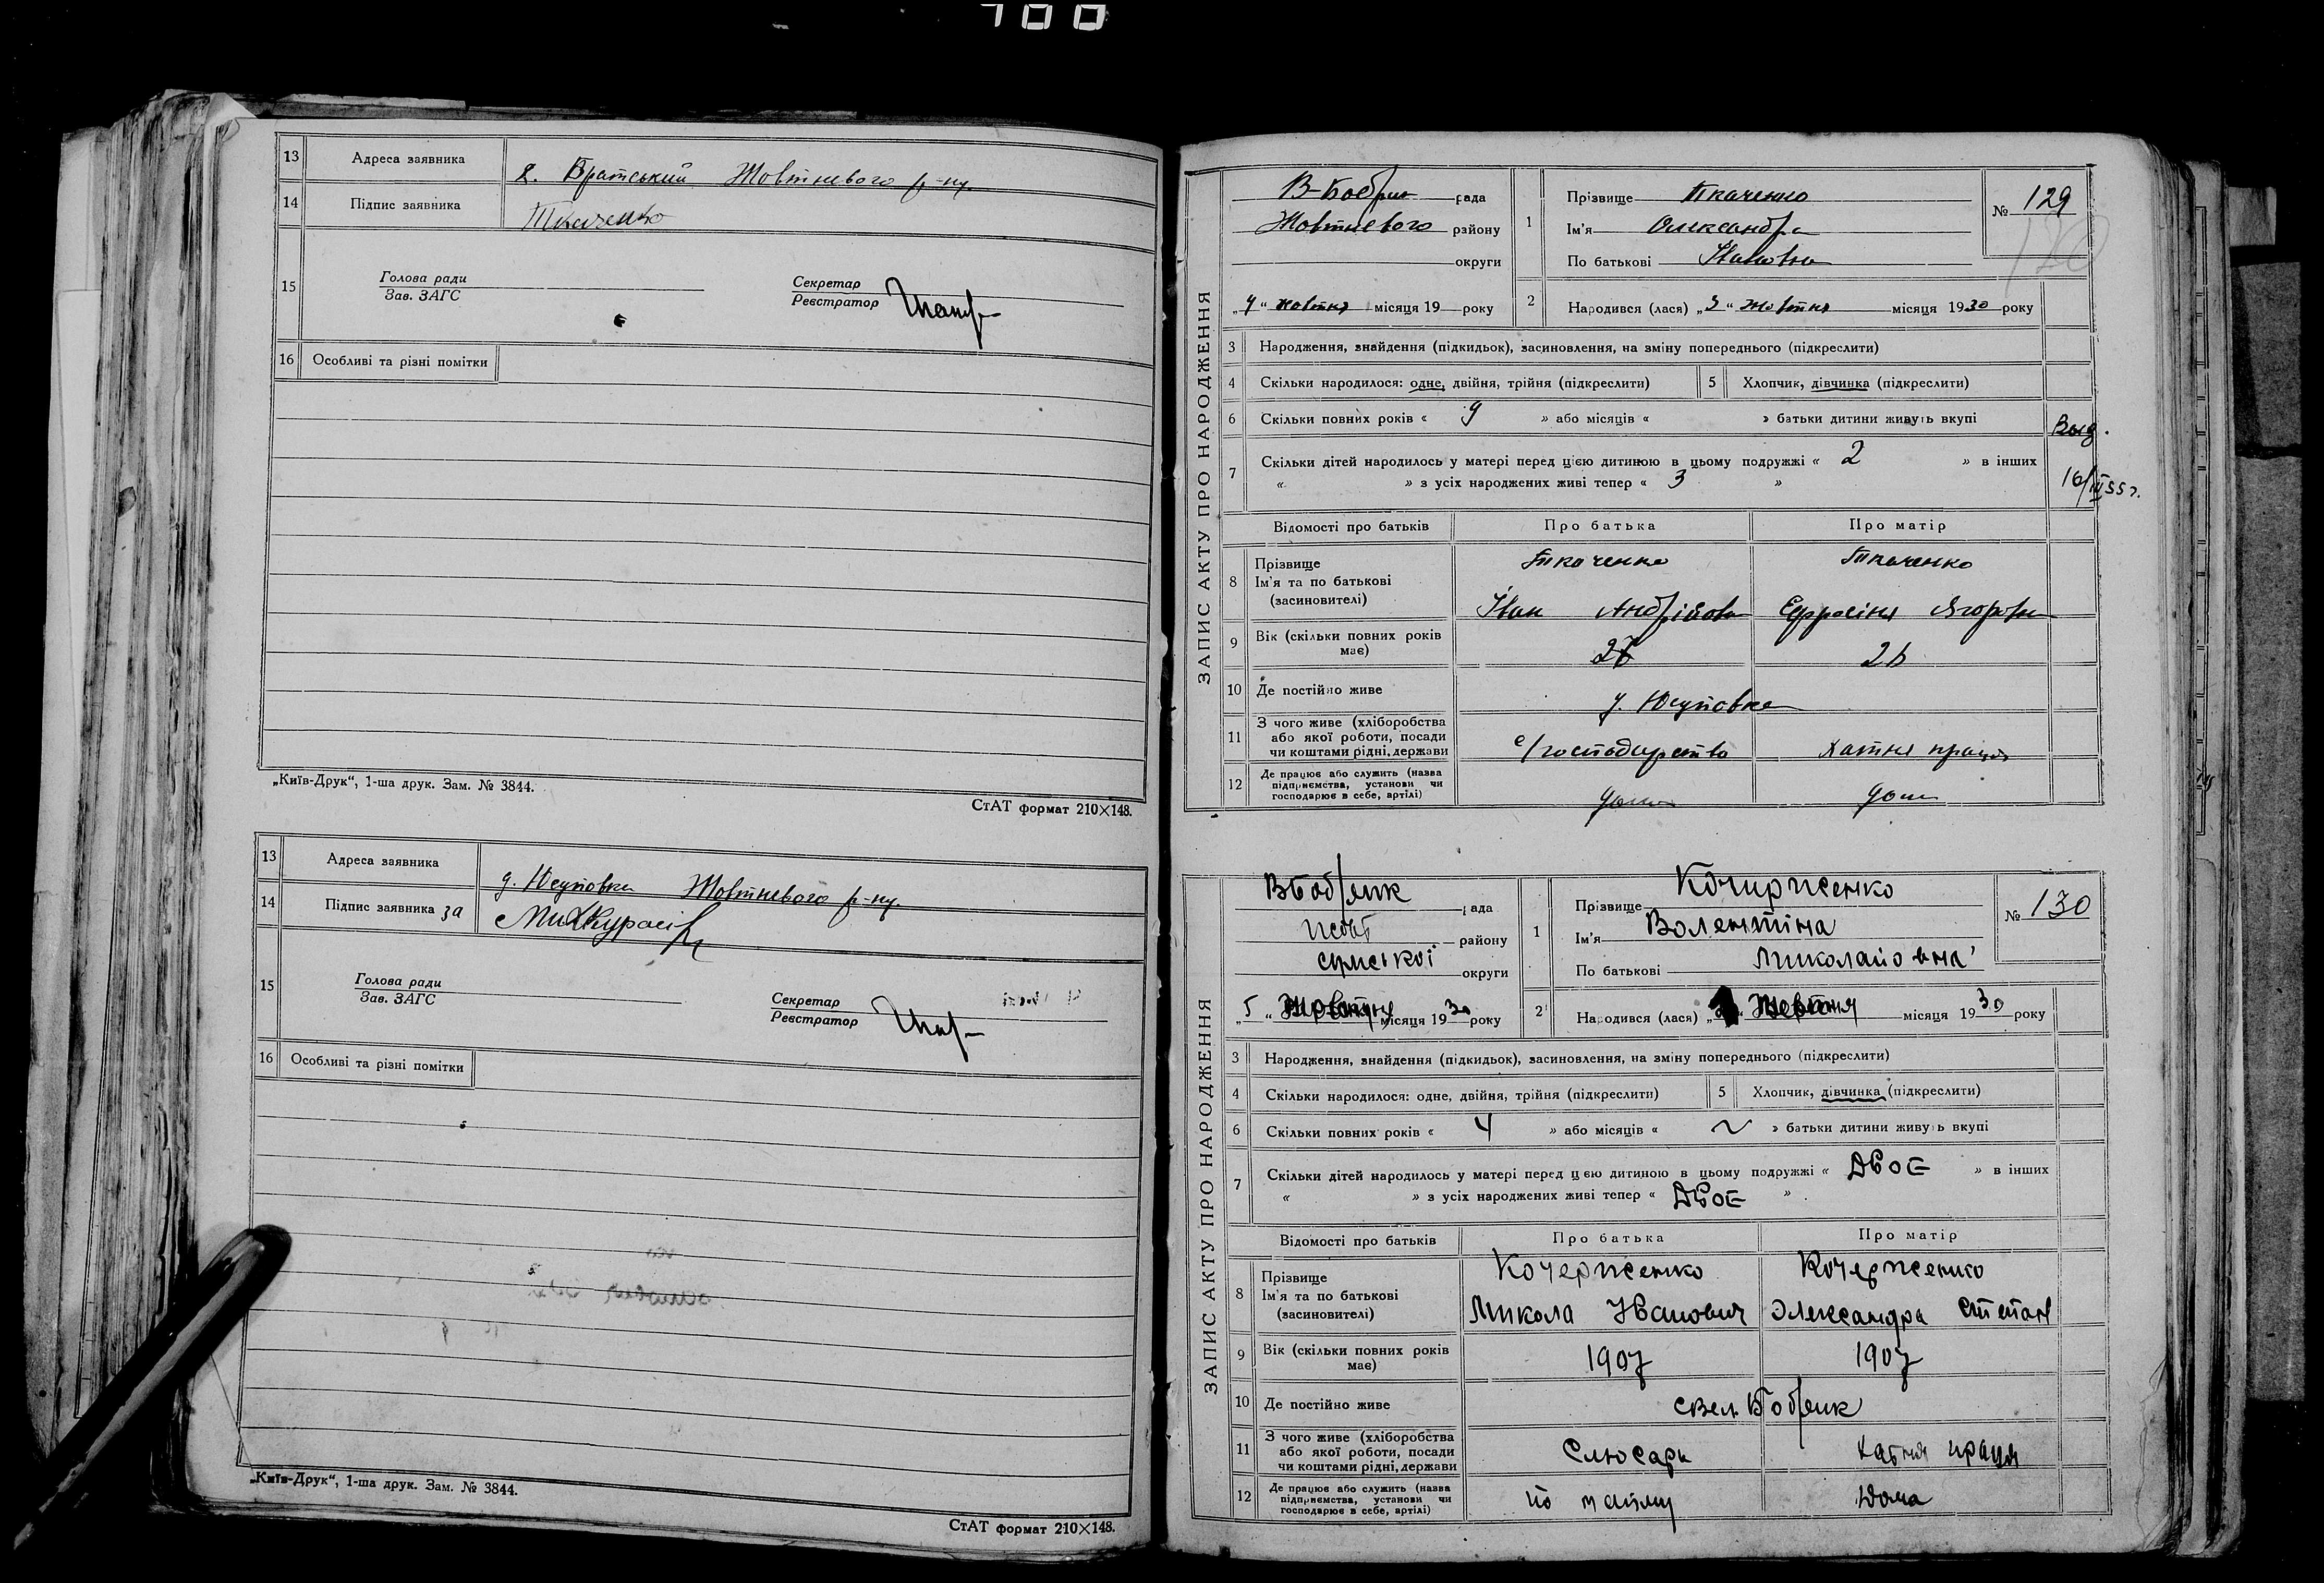 100
13 Адреса заявника х. Братський Жовтневого р-ну.
14 Підпис заявника Ткаченко
15 Голова ради
Зав. ЗАГС
Секретар
Реєстратор
16 Особливі та різні помітки
„Київ-Друк“, 1-ша друк. Зам. № 3844.
СтАТ формат 210×148.
13 Адреса заявника д. Юсуповка Жовтневого р-ну.
14 Підпис заявника за
15 Голова ради
Зав. ЗАГС
Секретар
Реєстратор
16 Особливі та різні помітки
„Київ-Друк“, 1-ша друк. Зам. № 3844.
СтАТ формат 210×148.
ЗАПИС АКТУ ПРО НАРОДЖЕННЯ
В-Бобрик рада
Жовтневого району
округи
„4“ жовтня місяця 19 року
1 Прізвище Ткаченко
Ім'я Олександра
По батькові Івановна
№ 129
2 Народився (лася) „3“ жовтня місяця 1930 року
3 Народження, знайдення (підкидьок), засиновлення, на зміну попереднього (підкреслити)
4 Скільки народилося: одне, двійня, трійня (підкреслити) 5 Хлопчик, дівчинка (підкреслити)
6 Скільки повних років « 9 » або місяців « » батьки дитини живуть вкупі
Выд.
7 Скільки дітей народилось у матері перед цією дитиною в цьому подружжі « 2 » в інших
« » з усіх народжених живі тепер « 3 »
16/III 55 г.
Відомості про батьків Про батька Про матір
8 Прізвище Ткаченко Ткаченко
Ім'я та по батькові
(засиновителі) Іван Андрійов Ефросіня Ягоровн
9 Вік (скільки повних років
має) 26
10 Де постійно живе д. Юсуповка
11 З чого живе (хліборобства
або якої роботи, посади
чи коштами рідні, держави с/господарство хатня праця
12 Де працює або служить (назва
підприємства, установи чи
господарює в себе, артілі) дома дом
ЗАПИС АКТУ ПРО НАРОДЖЕННЯ
ВБобрик рада
району
сумської округи
„5“ Жовтня місяця 1930 року
1 Прізвище Кочирженко
Ім'я Волентіна
По батькові Миколайовна
№ 130
2 Народився (лася) Жовтня місяця 1930 року
3 Народження, знайдення (підкидьок), засиновлення, на зміну попереднього (підкреслити)
4 Скільки народилося: одне, двійня, трійня (підкреслити) 5 Хлопчик, дівчинка (підкреслити)
6 Скільки повних років « 4 » або місяців « ~ » батьки дитини живуть вкупі
7 Скільки дітей народилось у матері перед цією дитиною в цьому подружжі « двоє » в інших
« » з усіх народжених живі тепер « двоє »
Відомості про батьків Про батька Про матір
8 Прізвище Кочерженко Кочерженко
Ім'я та по батькові
(засиновителі) Микола Иванович Олександра Степан
9 Вік (скільки повних років
має) 1907 1907
10 Де постійно живе с Вел. Бобрик
11 З чого живе (хліборобства
або якої роботи, посади
чи коштами рідні, держави Слюсарь хатня праця
12 Де працює або служить (назва
підприємства, установи чи
господарює в себе, артілі) по найму дома